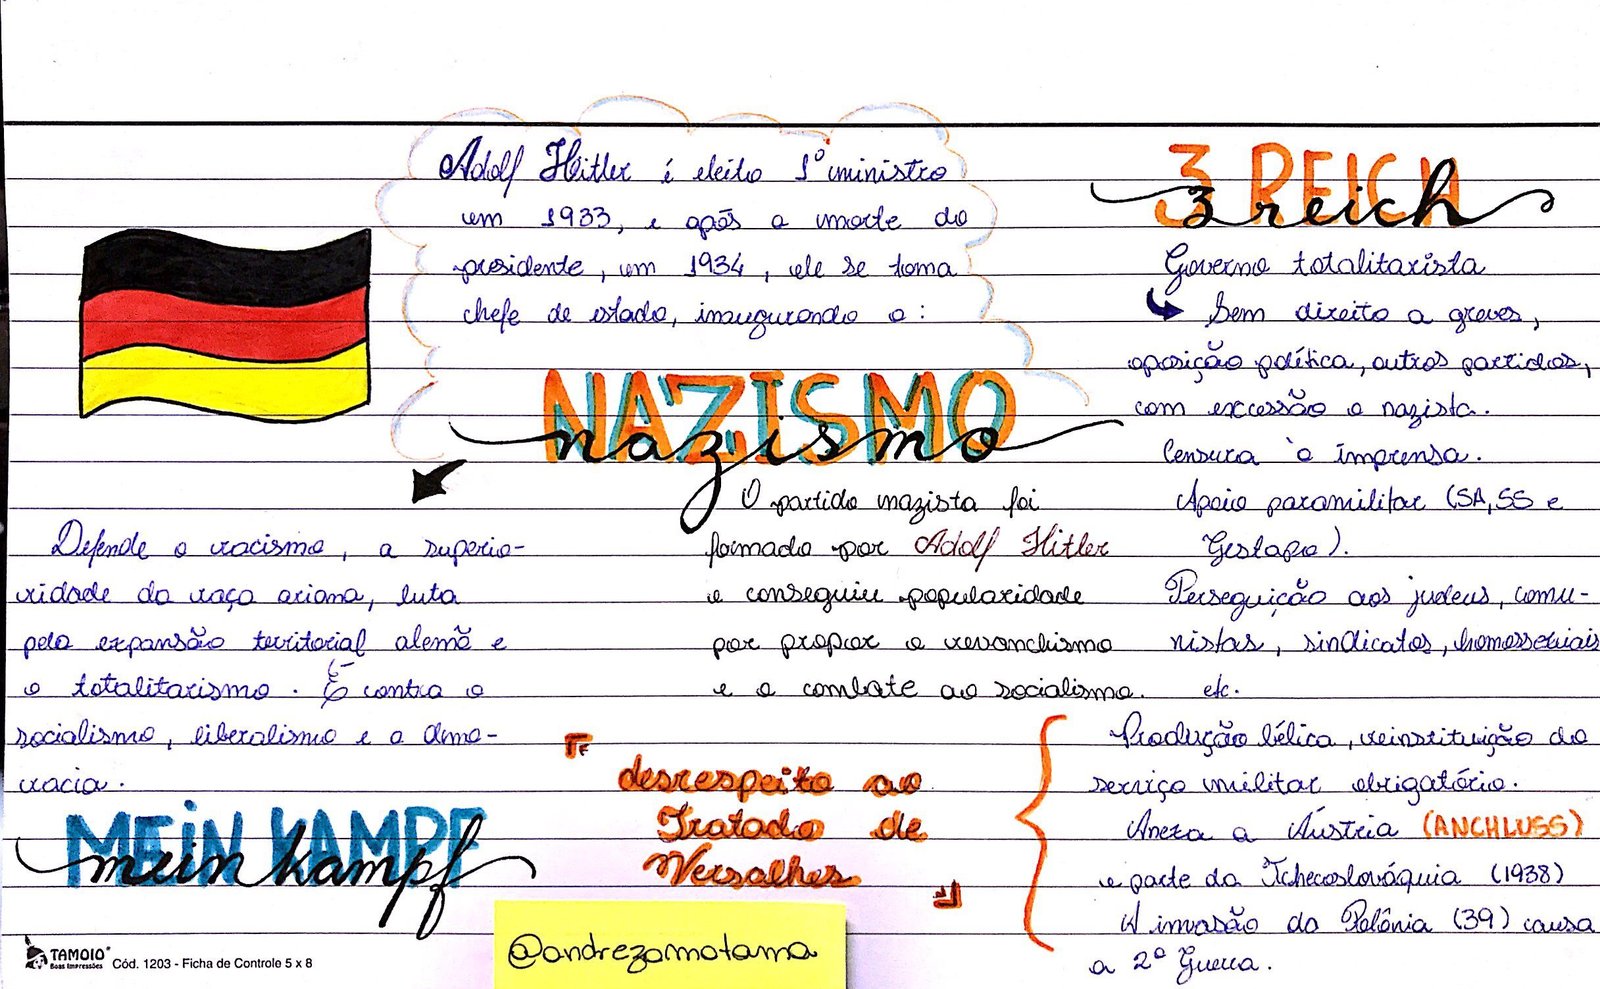 Adolf Hitler é eleito 1º ministro
em 1933, e após a morte do
presidente, em 1934, ele se torna
chefe de estado, inaugurando o:
NAZISMO
nazismo
Defende o racismo, a superio-
ridade da raça ariana, luta
pela expansão territorial alemã e
o totalitarismo. É contra o
socialismo, liberalismo e a demo-
cracia.
MEIN KAMPF
mein kampf
O partido nazista foi
formado por Adolf Hitler
e conseguiu popularidade
por propor o revanchismo
e o combate ao socialismo.
desrespeito ao
Tratado de
Versalhes
@andrezamotama
3 REICH
3 reich
Governo totalitarista
Sem direito a greves,
oposição política, outros partidos,
com excessão o nazista.
Censura à imprensa.
Apoio paramilitar (SA, SS e
Gestapo).
Perseguição aos judeus, comu-
nistas, sindicatos, homossexuais
etc.
Produção bélica, reinstituição do
serviço militar obrigatório.
Anexa a Áustria (ANCHLUSS)
e parte da Tchecoslováquia (1938)
A invasão da Polônia (39) causa
a 2ª Guerra.
TAMOIO
Boas Impressões
Cód. 1203 - Ficha de Controle 5 x 8